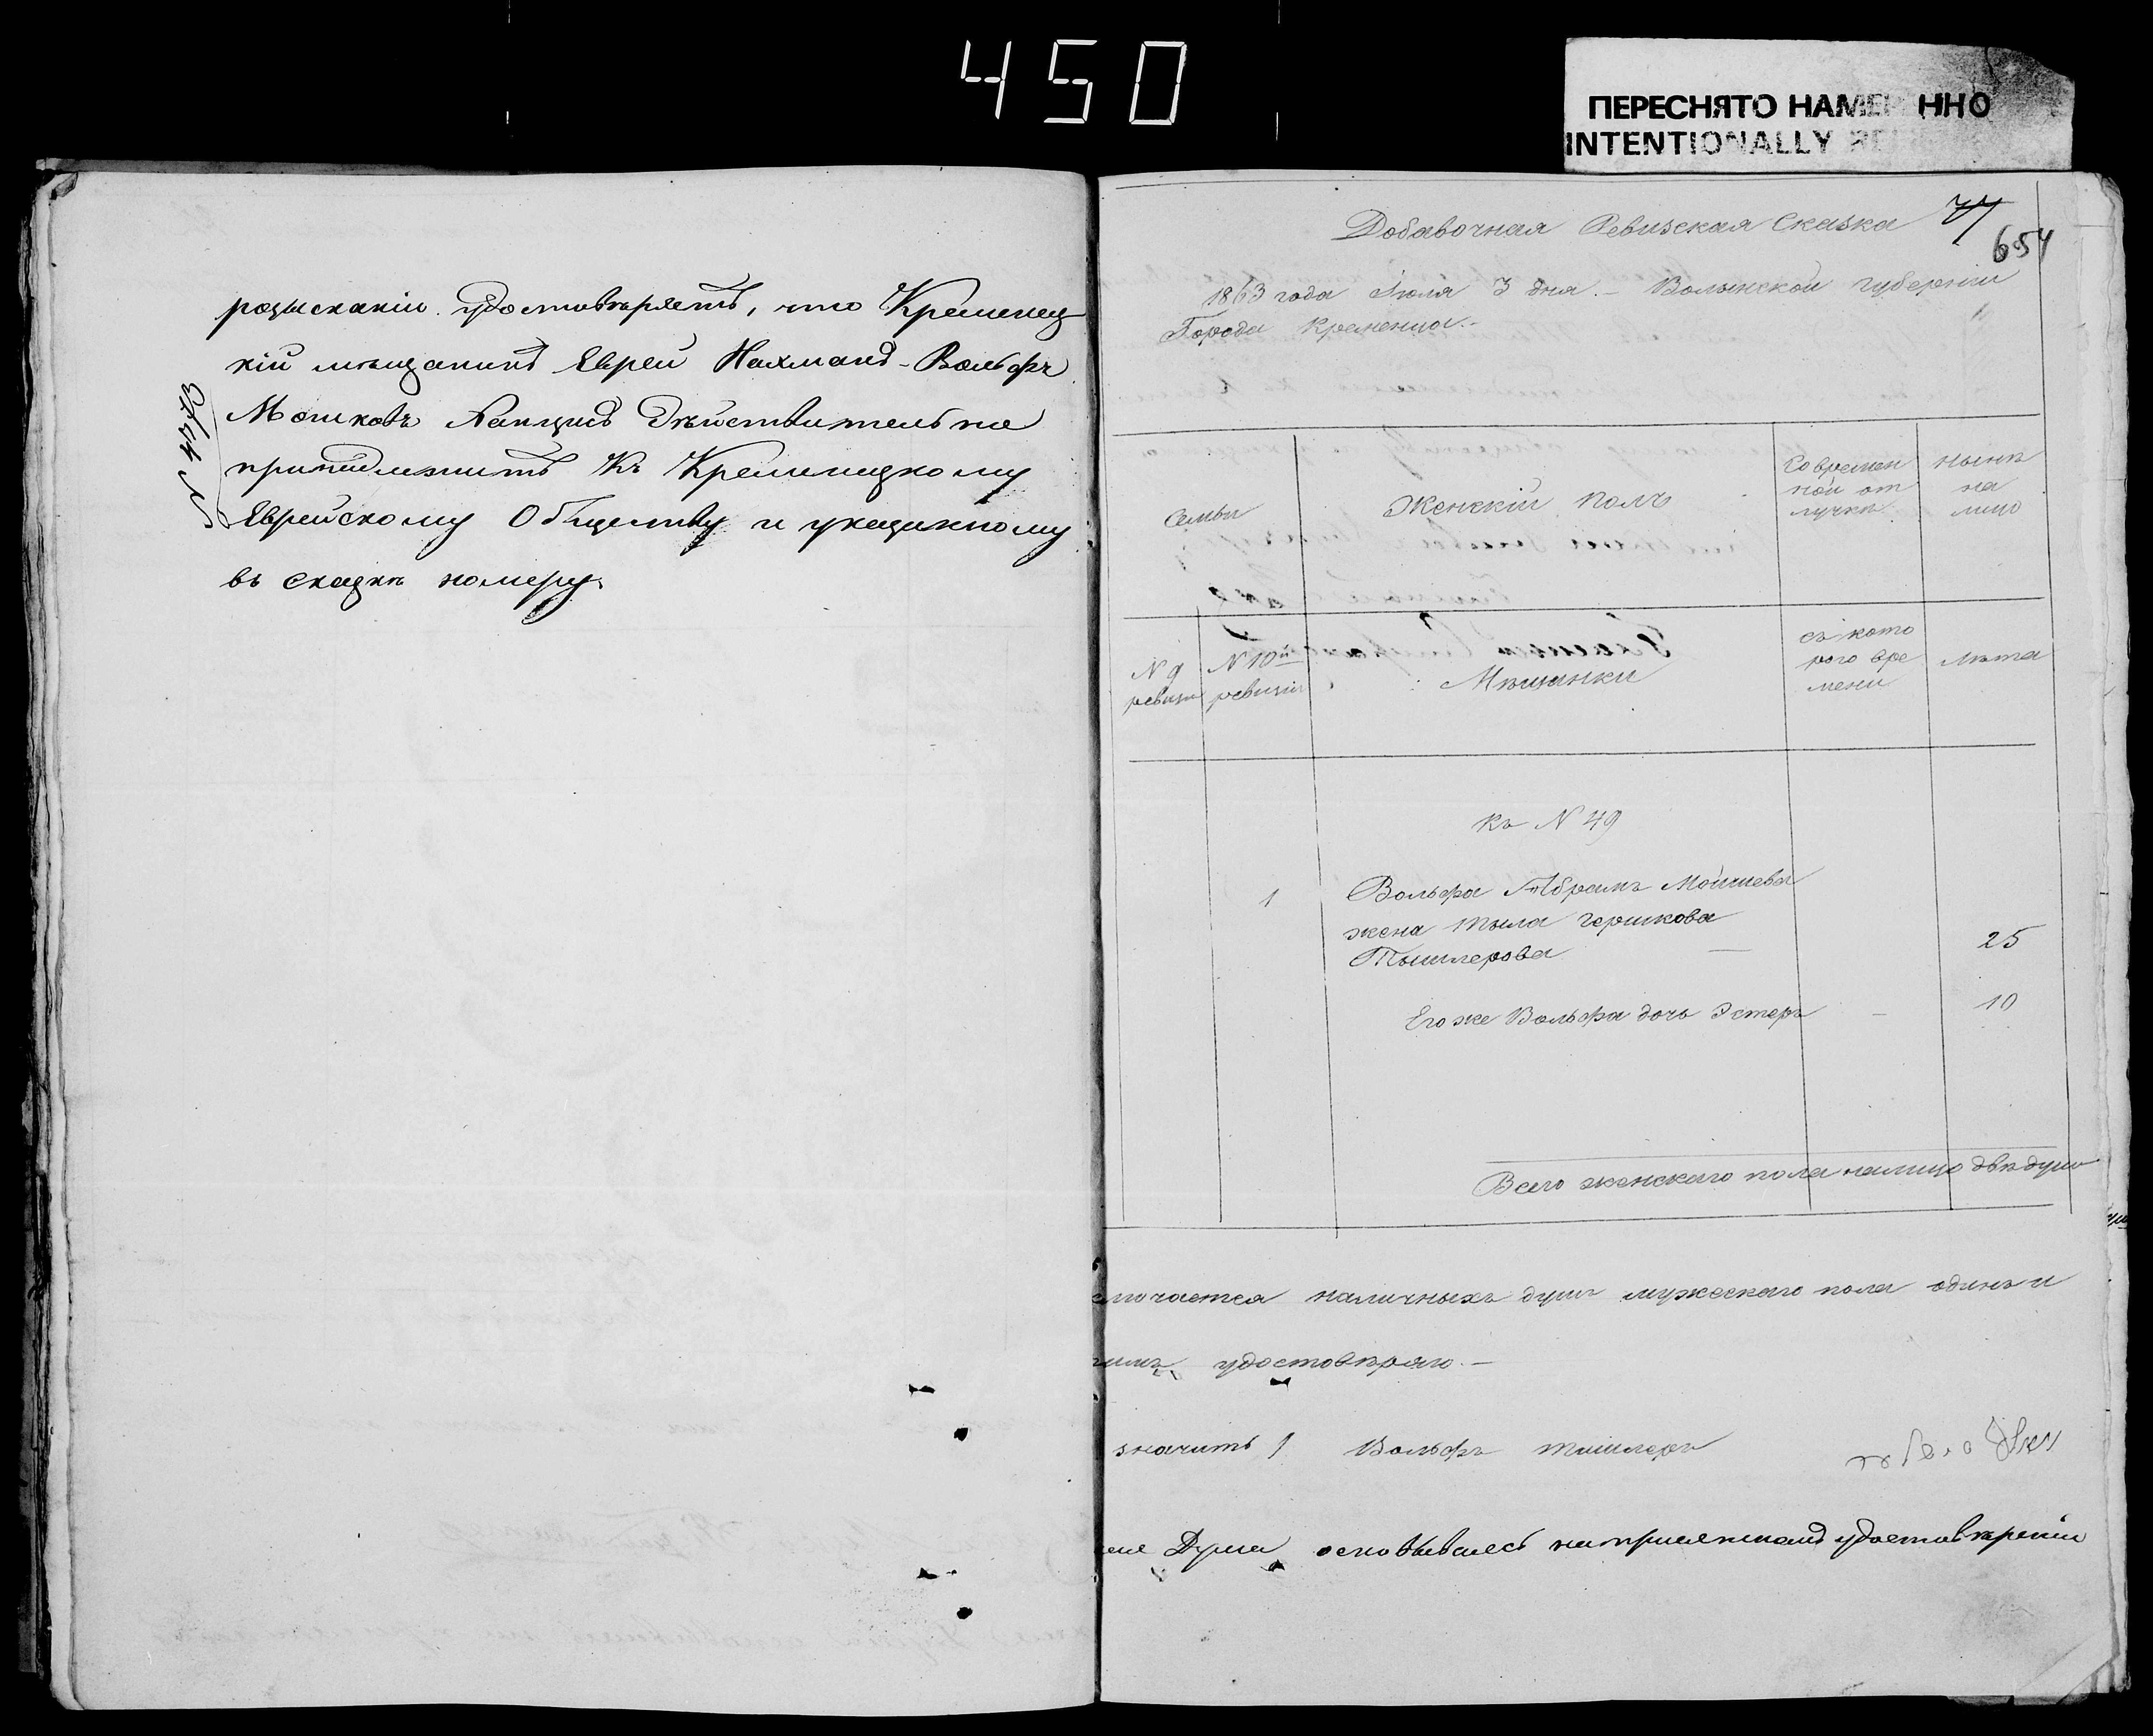 450
ПЕРЕСНЯТО НАМЕР ННО
INTENTIONALLY RE
розысканіи удостовѣряетъ, что Кременец
кій мѣщанинъ Еврей Нахманъ-Вольфъ
Мошковъ действительно
принадлежитъ Къ Кременецкому
Еврейскому Обществу и указанному
въ сказкѣ номеру.
77
654
Добавочная Ревизская Сказка
1863 года Іюля 3 дня. – Волынской губерніи
Города Кременца. –
Семьи
Женскій полъ
Во времен
ной от
лучкѣ
нынѣ
на
лицо
N 9
ревизіи
N 10й
ревизіи
Мѣщанки
съ кото
раго вре
мени
лѣта
къ N 49
1 Вольфа Абрамъ Мошиева
жена Тыла Гершкова
Тышлерова — 25
Его же Вольфа дочь Эстеръ – 10
Всего женскаго пола налицо двѣ души
ключается наличныхъ душъ мужескаго пола одинъ и
удостовѣряю. –
значитъ 1 Вольфъ Тишлеръ
Дума основываясь на присяжномъ удостовѣреніи